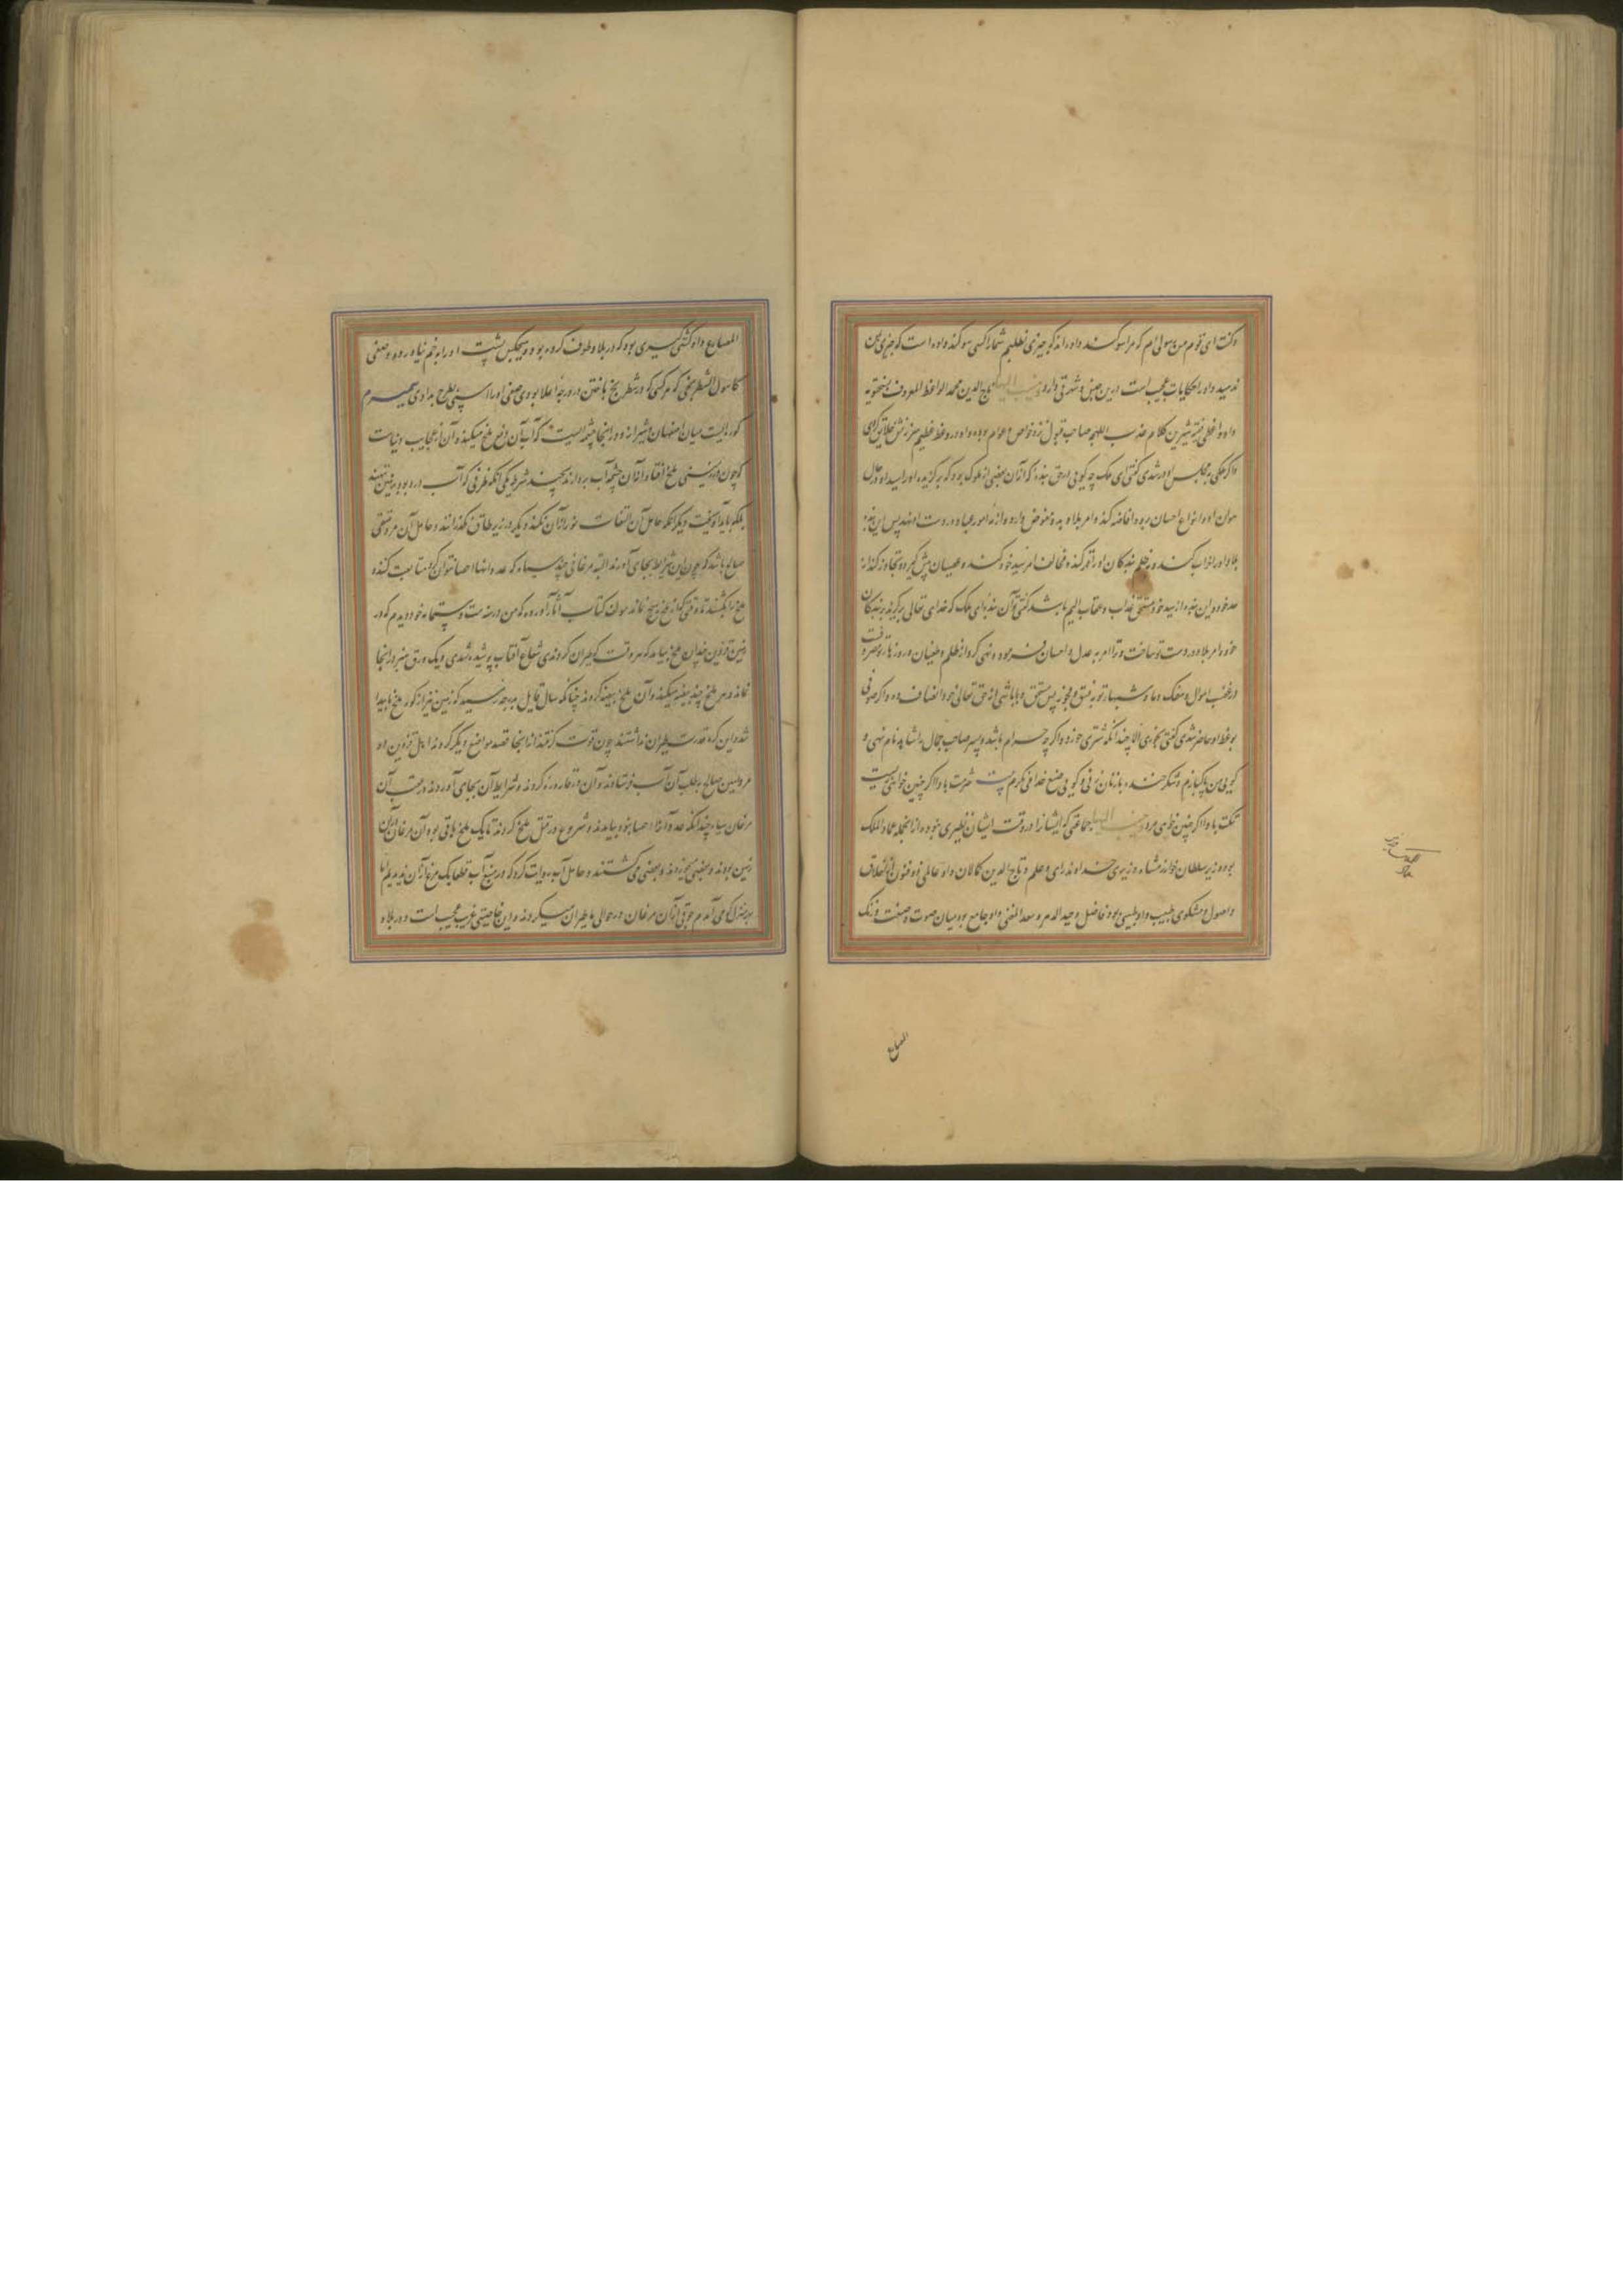 و گفت ای قوم من رسولی‌ام که مرا سوگند داده‌اند که چیزی نطلبم شما را کسی سوگند داده است که چیزی بمن
ندهید و او را حکایات عجیب است ازین جنس و شهرتی دارد وینسب الیها تاج الدین محمد الواعظ المعروف
و او واعظی شیرین کلام عذب اللهجه صاحب قبول نزد خواص و عوام بوده و او در وعظ خلایق
و اگر ملکی بمجلس او در شدی گفتی ای ملک چه گویی در حق بنده که از آن بعضی از ملوک بود که برگزیده او را سید او و حال
او و انواع احسان برو افاضه کند و امر بلاد بدو مفوض دارد و ازمه امور عباد در دست او نهد پس این بنده
بلاد او را خراب کند و بر ظلم بندگان او کند و مخالفت امر سید خود کند و عصیان پیش گیرد و تجاوز کند از
حد خود و این بنده از سید خود مستحق عذاب و عقاب الیم باشد گفتی تو آن بنده‌ای ملک که خدای تعالی برگزید بر بندگان
خود و امر بلاد در دست تو ساخت و ترا امر به عدل و احسان فرموده و نهی کرد از ظلم و طغیان و روزها تو مصروفست
در غصب اموال و سفک دماء و شبها تو به فسق و فجور پس مستحق چه باشی از حق تعالی خود انصاف ده و اگر صوفی
بوعظ او حاضر شدی گفتی نخوری الا چندانکه شتری خورد و اگر چه حرام باشد و پسر صاحب جمال را شاهد نام نهی و
گویی من پاکبازم و شکر خنده با زنان زنی و گویی صنع خدا می‌نگرم شرمت باد اگر چنین خواهی زیست
نکبت باد اگر چنین خواهی مرد وینسب الیها جماعتی که ایشانرا در وقت ایشان نظیری نبود و از آنجمله عماد الملک
بوده وزیر سلطان خوارزمشاه وزیری خداوند رای و علم و تاج الدین کمالان و او عالمی ذو فنون از خلاف
و اصول و مشکوی طبیب و او طبیبی بود فاضل وحید الدهر و سعد المغنی و او جامع بود میان صوت و صنعت و
المصارع
المصارع و او کشتی‌گیری بود که در بلاد طوف کرده بود و هیچکس پشت او را به خم نیاورده و صفی
کاسول الشطرنجی که هر کسی که در شطرنج باختن در درجه اعلا بودی صفی او را اسپی بطرح بدادی سمیرم
کوره‌ایست میان اصفهان و شیراز و در اینجا چشمه‌ایست که آب آن دفع ملخ میکند و آن از عجایب دنیاست
که چون در زمینی ملخ افتد و از آن چشمه آب بردارند بچند شرط یکی آنکه ظرفی که آب درو بود بر زمین ننهند
بلکه باید آویخت و دیگر آنکه حامل آن التفات نورزد آن نکند و دیگر در زیر طاق نگذرانند و حامل آن مرد متقی
صالح باشد که چون این شرایط بجای آورند البته مرغانی چند سیاه که عدد آنها احصا نتوان کرد متابعت کنند و
ملخ را بکشند تا وقتی که از ملخ هیچ نماند مولف کتاب آثار آورده که من در سنه ست و ستمائه خود دیدم که در
زمین قزوین چندان ملخ بیامد که هر وقت که طیران کردندی شعاع آفتاب پوشیده شدی و یک ورق سبز در آنجا
نماند و هر ملخ چند بیضه میکند و آن ملخ بیضه کردند چنانکه سال قابل بدرجه رسید که زمین نیز از کور ملخ ناپیدا
شد و این کره قدرت طیران نداشتند چون قوت گرفتند از اینجا قصد مواضع دیگر کردند اهل قزوین دو
مرد امین صالح بطلب آن آب فرستادند و آن در قاروره کردند و شرایط آن بجای آوردند در عقب آن
مرغان سیاه چندانکه عدد آنرا احصا نبود بیامدند و شروع در قتل ملخ کردند تا یک ملخ باقی بود آن مرغان
زمین بودند و بعضی میخوردند و بعضی می‌کشتند و حامل آب روایت کرد که در منبع آب قطعا یک مرغ از آن ندیدیم اما
بهر منزل که می‌آمدیم جوقی از آن مرغان در حوالی ما طیران میکردند و این خاصیتی غریب عجیب است و در بلاد